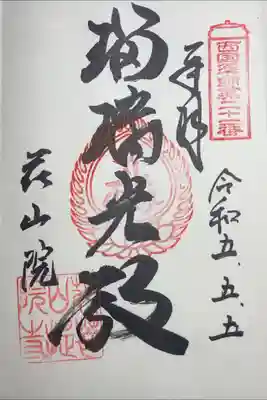 西国薬師第二十一番
奉拝
令和五.五.五
瑠璃光殿
花山院